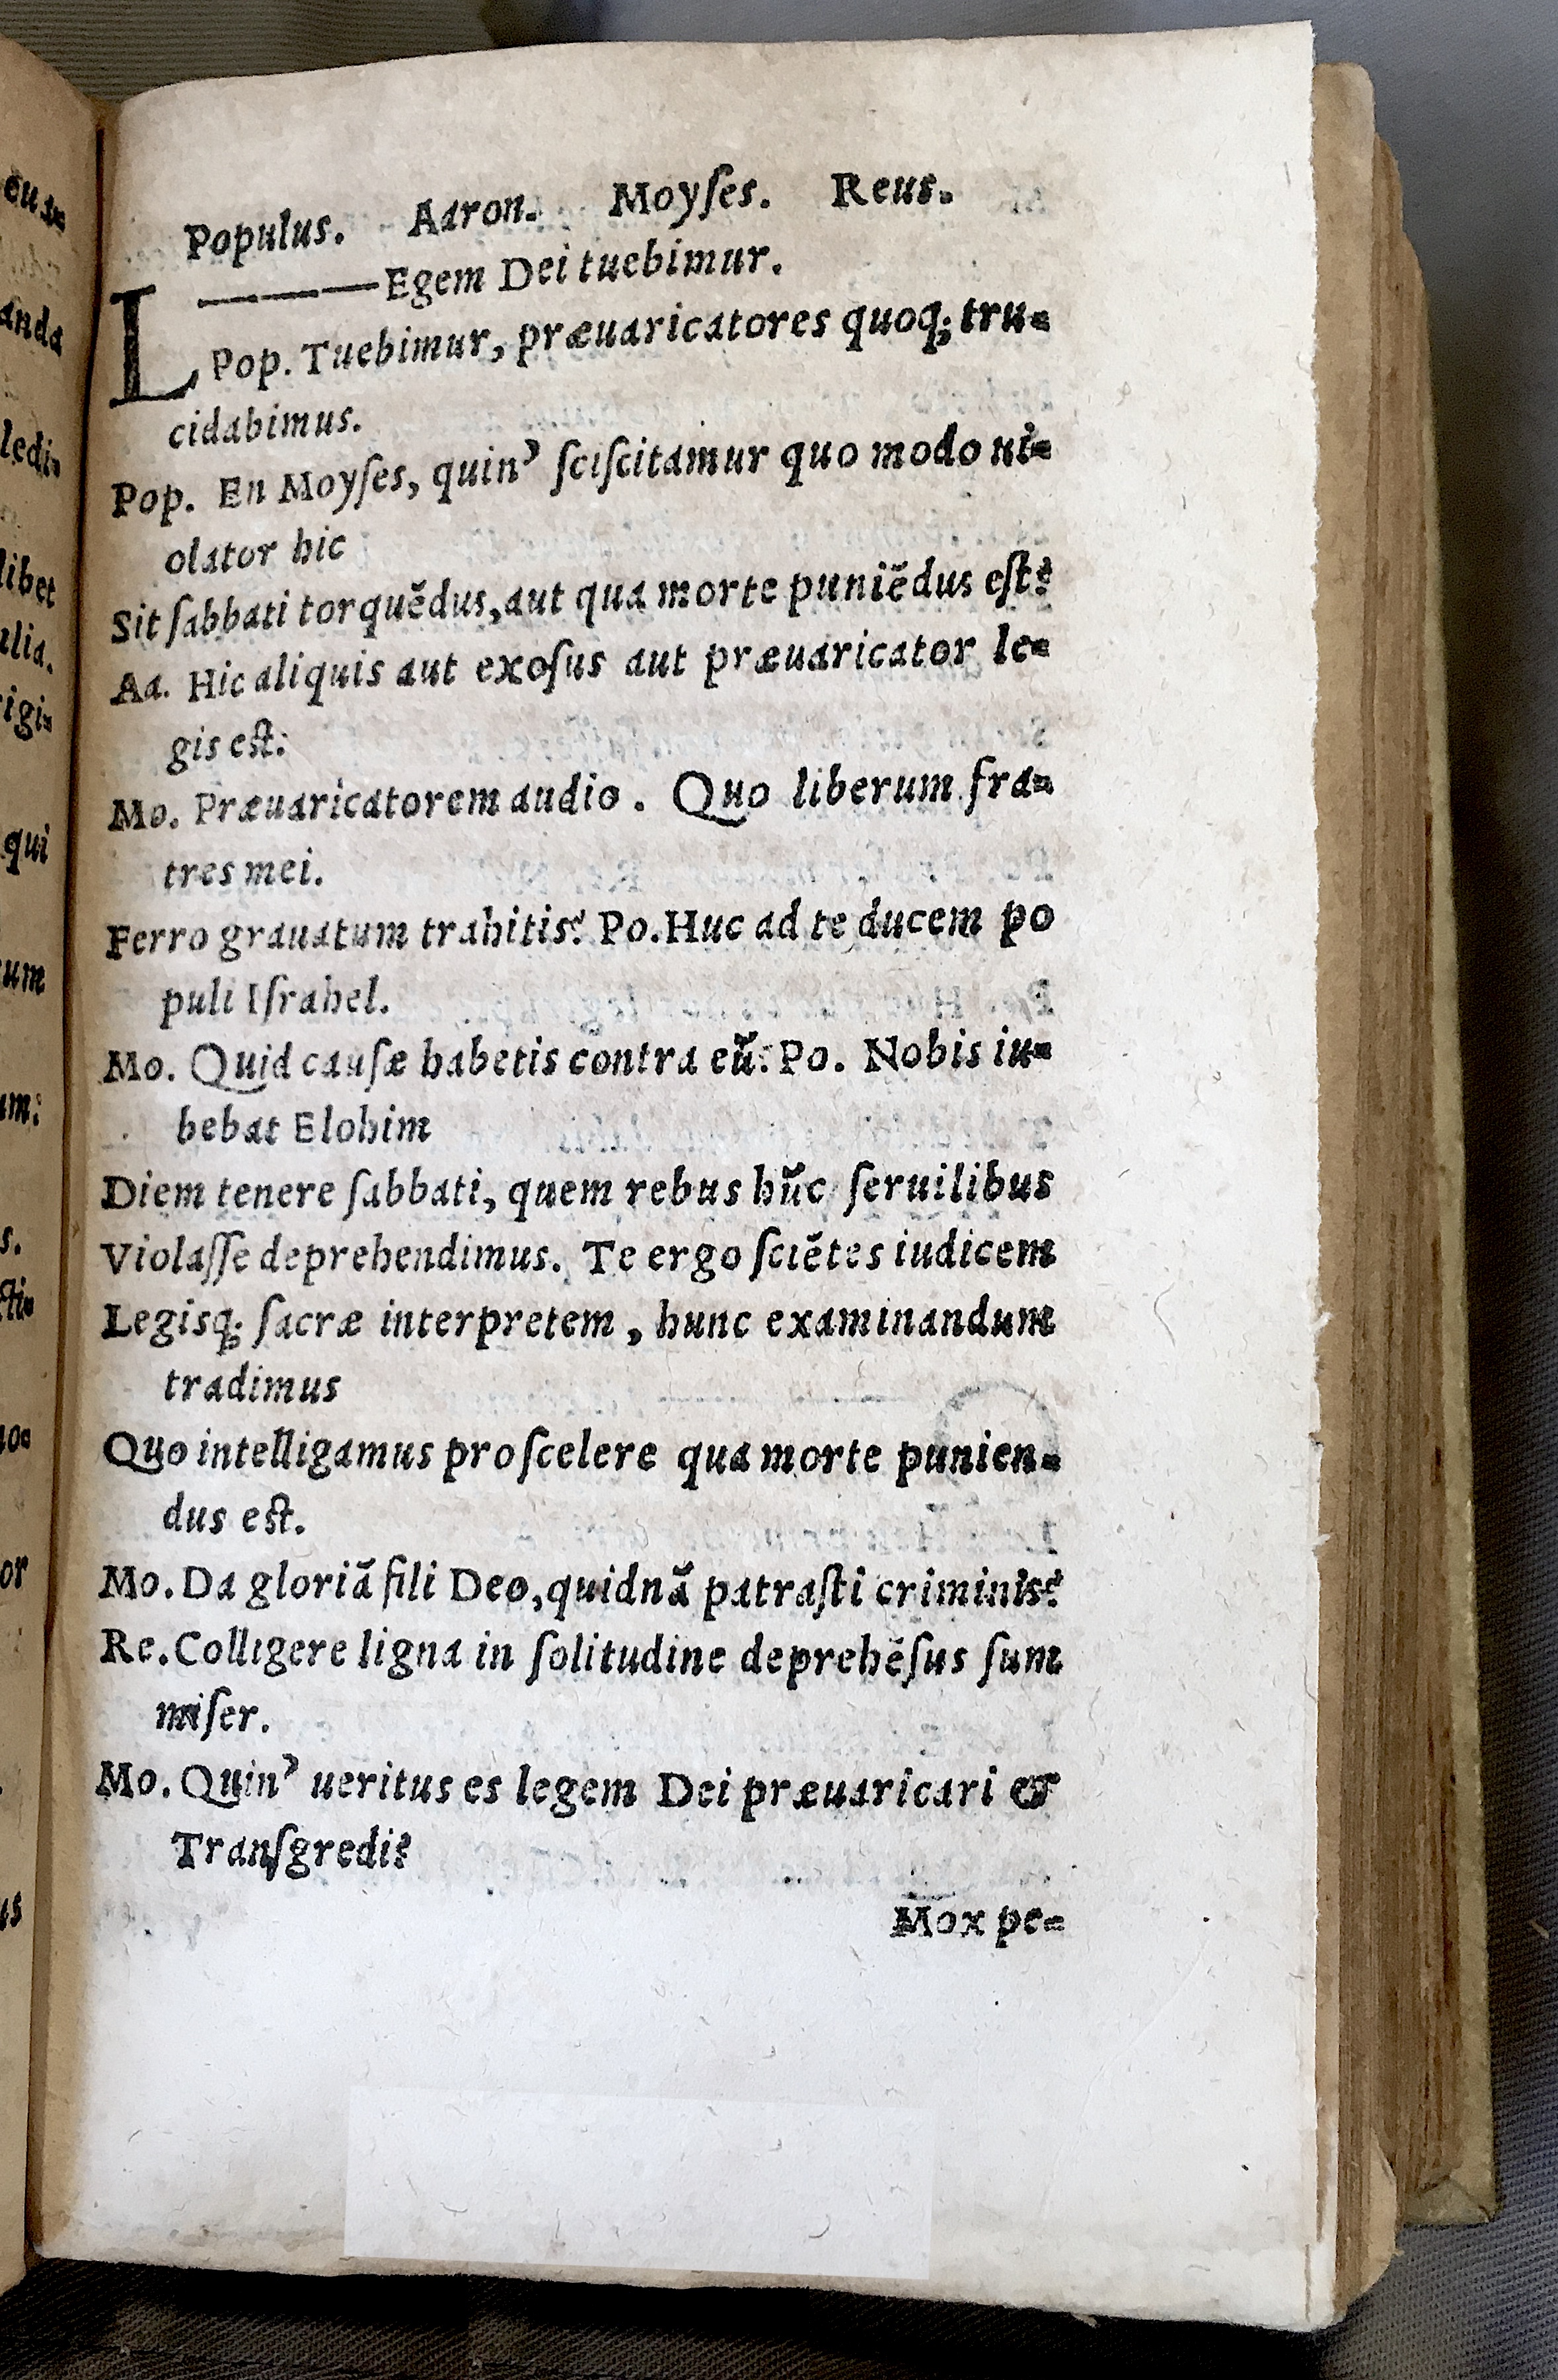 Populus. Aaron. Moyſes. Reus.
L ————Egem Dei tuebimur.
Pop. Tuebimur, præuaricatores quoq; tru=
cidabimus.
Pop. En Moyſes, quin' ſciſcitamur quo modo ui=
olator hic
Sit ſabbati torquēdus, aut qua morte puniēdus eſt?
Aa. Hic aliquis aut exoſus aut præuaricator le=
gis eſt:
Mo. Præuaricatorem audio. Quo liberum fra=
tres mei.
Ferro grauatum trahitis? Po. Huc ad te ducem po
puli Iſrahel.
Mo. Quid cauſæ habetis contra eū: Po. Nobis iu=
bebat Elohim
Diem tenere ſabbati, quem rebus hūc ſeruilibus
Violaſſe deprehendimus. Te ergo ſciētes iudicem
Legisq; ſacræ interpretem, hunc examinandum
tradimus
Quo intelligamus pro ſcelere qua morte punien=
dus eſt.
Mo. Da gloriā fili Deo, quidnā patraſti criminis?
Re. Colligere ligna in ſolitudine deprehēſus ſum
miſer.
Mo. Quin' ueritus es legem Dei præuaricari &
Tranſgredi?
Mox pe=